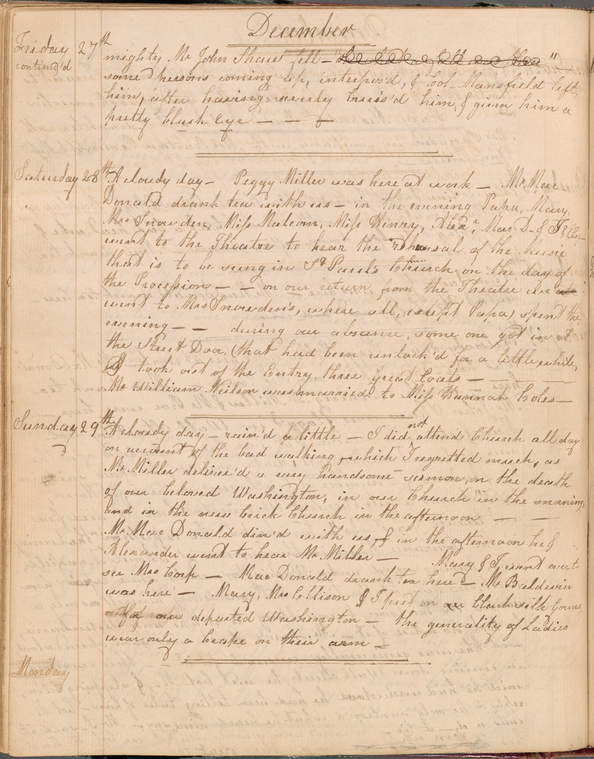 December
Friday 27th mighty Mr John Shaw fell — "—
contin'd some persons coming up, interpos'd, & Col. Mansfield left
him, after having surely bruis'd him, & given him a
pretty blush eye — — —
Saturday 28th A cloudy day — Peggy Miller was here at work — Mr Mac
Donald drank tea with us — in the evening Papa, Mary,
Mrs Snowden, Miss Malcom, Miss Henry, Alexr, Mac D. &
went to the Theatre to hear the rehearsal of the Music
that is to be sung in St Paul's Church on the day of
the Procession — — on our return from the Theatre we
went to Mrs Snowden's, where all, except Papa, spent the
evening — — during our absence, some one got in at
the Street Door, (that had been unlock'd for a little while,
& took out of the Entry, three great Coats —
Mr William Nielson was married to Miss Hannah Coles —
Sunday 29th A cloudy day — rain'd a little — I did not attend Church all day
on account of the bad walking, which I regretted much, as
Mr Miller deliver'd a very handsome sermon, on the death
of our beloved Washington, in our Church in the morning,
and in the new brick Church in the afternoon — —
Mr Mac Donald din'd with us, & in the afternoon he &
Alexander went to hear Mr Miller — Mary & I went over to
see Mrs — Mac Donald drank tea here — Mr Baldwin
was here — Mary, Mrs Collison & I put on Gowns
for our departed Washington — the generality of Ladies
wear only a Crape on their arm —
Monday